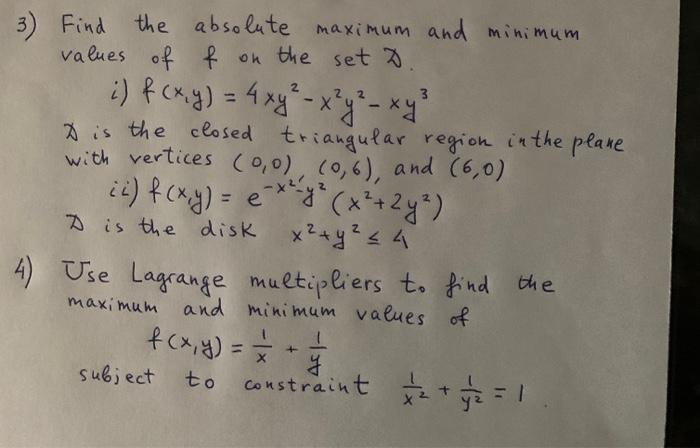 3) Find the absolute maximum and minimum
values of f on the set D.
i) f(x,y) = 4xy² - x²y² - xy³
D is the closed triangular region in the plane
with vertices (0,0), (0,6), and (6,0)
ii) f(x,y) = e^(-x²-y²) (x²+2y²)
D is the disk x²+y² ≤ 4
4) Use Lagrange multipliers to find the
maximum and minimum values of
f(x,y) = 1/x + 1/y
subject to constraint 1/x² + 1/y² = 1.